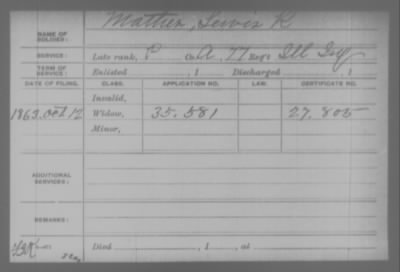 NAME OF SOLDIER: Mather, Lewis K
SERVICE: Late rank, P Co. A, 77 Reg't Ill Inf
TERM OF SERVICE: Enlisted , 1 Discharged , 1
DATE OF FILING. CLASS. APPLICATION NO. LAW. CERTIFICATE NO.
Invalid,
1863. Oct 12 Widow, 35.581 27.805
Minor,
ADDITIONAL SERVICES:
REMARKS:
Died , 1 , at